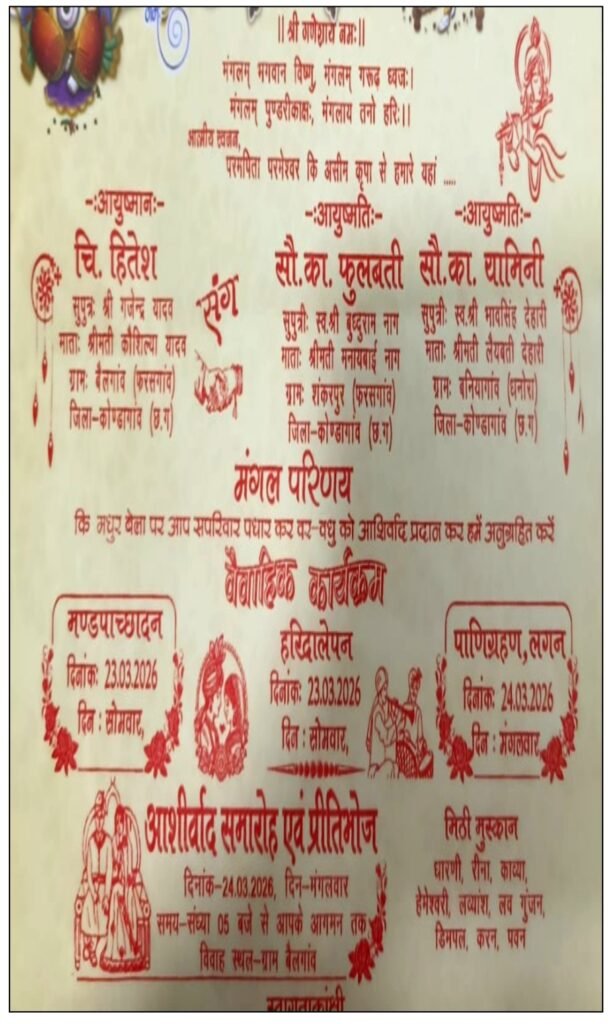 || श्री गणेशाय नमः||
मंगलम् भगवान विष्णु, मंगलम् गरूढ़ ध्वजः।
मंगलम् पुण्डरीकाक्षः, मंगलाय तनो हरिः।।
आत्मीय स्वजन,
परमपिता परमेश्वर कि असीम कृपा से हमारे यहां .....
-:आयुष्मानः-
चि. हितेश
सुपुत्रः श्री गजेन्द्र यादव
माताः श्रीमती कौशिल्या यादव
ग्रामः बैलगांव (फरसगांव)
जिला-कोण्डागांव (छ.ग)
संग
-:आयुष्मतिः-
सौ.का. फुलबती
सुपुत्रीः स्व.श्री बुध्दुराम नाग
माताः श्रीमती मनायबाई नाग
ग्रामः शंकरपुर (फरसगांव)
जिला-कोण्डागांव (छ.ग)
-:आयुष्मतिः-
सौ.का. यामिनी
सुपुत्रीः स्व.श्री भावसिंह देहारी
माताः श्रीमती लैयबती देहारी
ग्रामः बनियागांव (धनोरा)
जिला-कोण्डागांव (छ.ग)
मंगल परिणय
कि मधुर बेला पर आप सपरिवार पधार कर वर-वधु को आशिर्वाद प्रदान कर हमें अनुग्रहित करें
वैवाहिक कार्यक्रम
मण्डपाच्छादन
दिनांकः 23.03.2026
दिन : सोमवार,
हरिद्रालेपन
दिनांकः 23.03.2026
दिन : सोमवार,
पाणिग्रहण, लगन
दिनांकः 24.03.2026
दिन : मंगलवार
आशीर्वाद समारोह एवं प्रीतिभोज
दिनांक-24.03.2026, दिन-मंगलवार
समय-संध्या 05 बजे से आपके आगमन तक
विवाह स्थल-ग्राम बैलगांव
मिठी मुस्कान
धारणी, रीना, काव्या,
हेमेश्वरी, लव्यांश, लव गुंजन,
डिमपल, करन, पवन
स्वागताकांक्षी